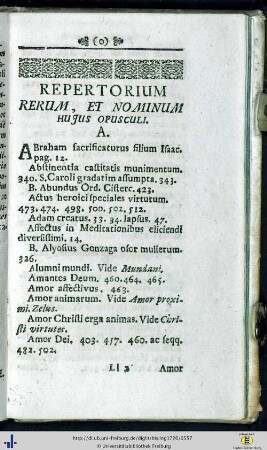 (0)
REPERTORIUM
RERUM, ET NOMINUM
HUJUS OPUSCULI.
A.
ABraham sacrificaturus filium Isaac.
pag. 12.
Abstinentia castitatis munimentum.
340. S. Caroli gradatim assumpta. 343.
B. Abundus Ord. Cisterc. 423.
Actus heroici speciales virtutum.
473. 474. 498. 500. 502. 512.
Adam creatus. 33. 34. lapsus. 47.
Affectus in Meditationibus eliciendi
diversissimi. 14.
B. Aloysius Gonzaga osor mulierum.
326.
Alumni mundi. Vide Mundani.
Amantes Deum. 460. 464. 465.
Amor affectivus. 463.
Amor animarum. Vide Amor proxi-
mi. Zelus.
Amor Christi erga animas. Vide Chri-
sti virtutes.
Amor Dei. 403. 457. 460. ac seqq.
482. 502.
Amor
http://dl.ub.uni-freiburg.de/diglit/
© Universitätsbibliothek Freiburg